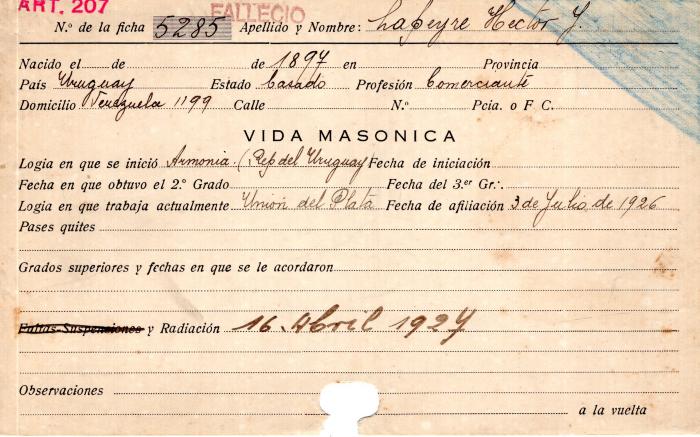 ART. 207
FALLECIO
N.º de la ficha 5285 Apellido y Nombre: Lapeyre Hector J.
Nacido el de de 1897 en Provincia
País Uruguay Estado Casado Profesión Comerciante
Domicilio Venezuela 1199 Calle N.º Pcia. o F C.
VIDA MASONICA
Logia en que se inició Armonia. (Rep del Uruguay) Fecha de iniciación
Fecha en que obtuvo el 2.º Grado Fecha del 3.er Gr∴
Logia en que trabaja actualmente Unión del Plata Fecha de afiliación 3 de Julio de 1926
Pases quites
Grados superiores y fechas en que se le acordaron
Faltas-Suspensiones y Radiación 16. Abril 1927
Observaciones
a la vuelta